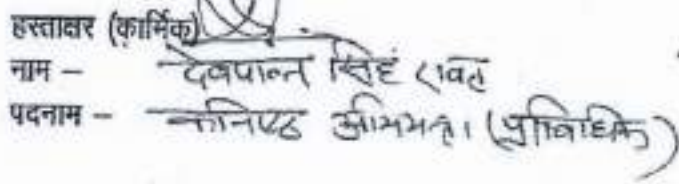 हस्ताक्षर (कार्मिक)
नाम – देवपाल सिंह रावत
पदनाम – कनिष्ठ अभियन्ता (प्राविधिक)